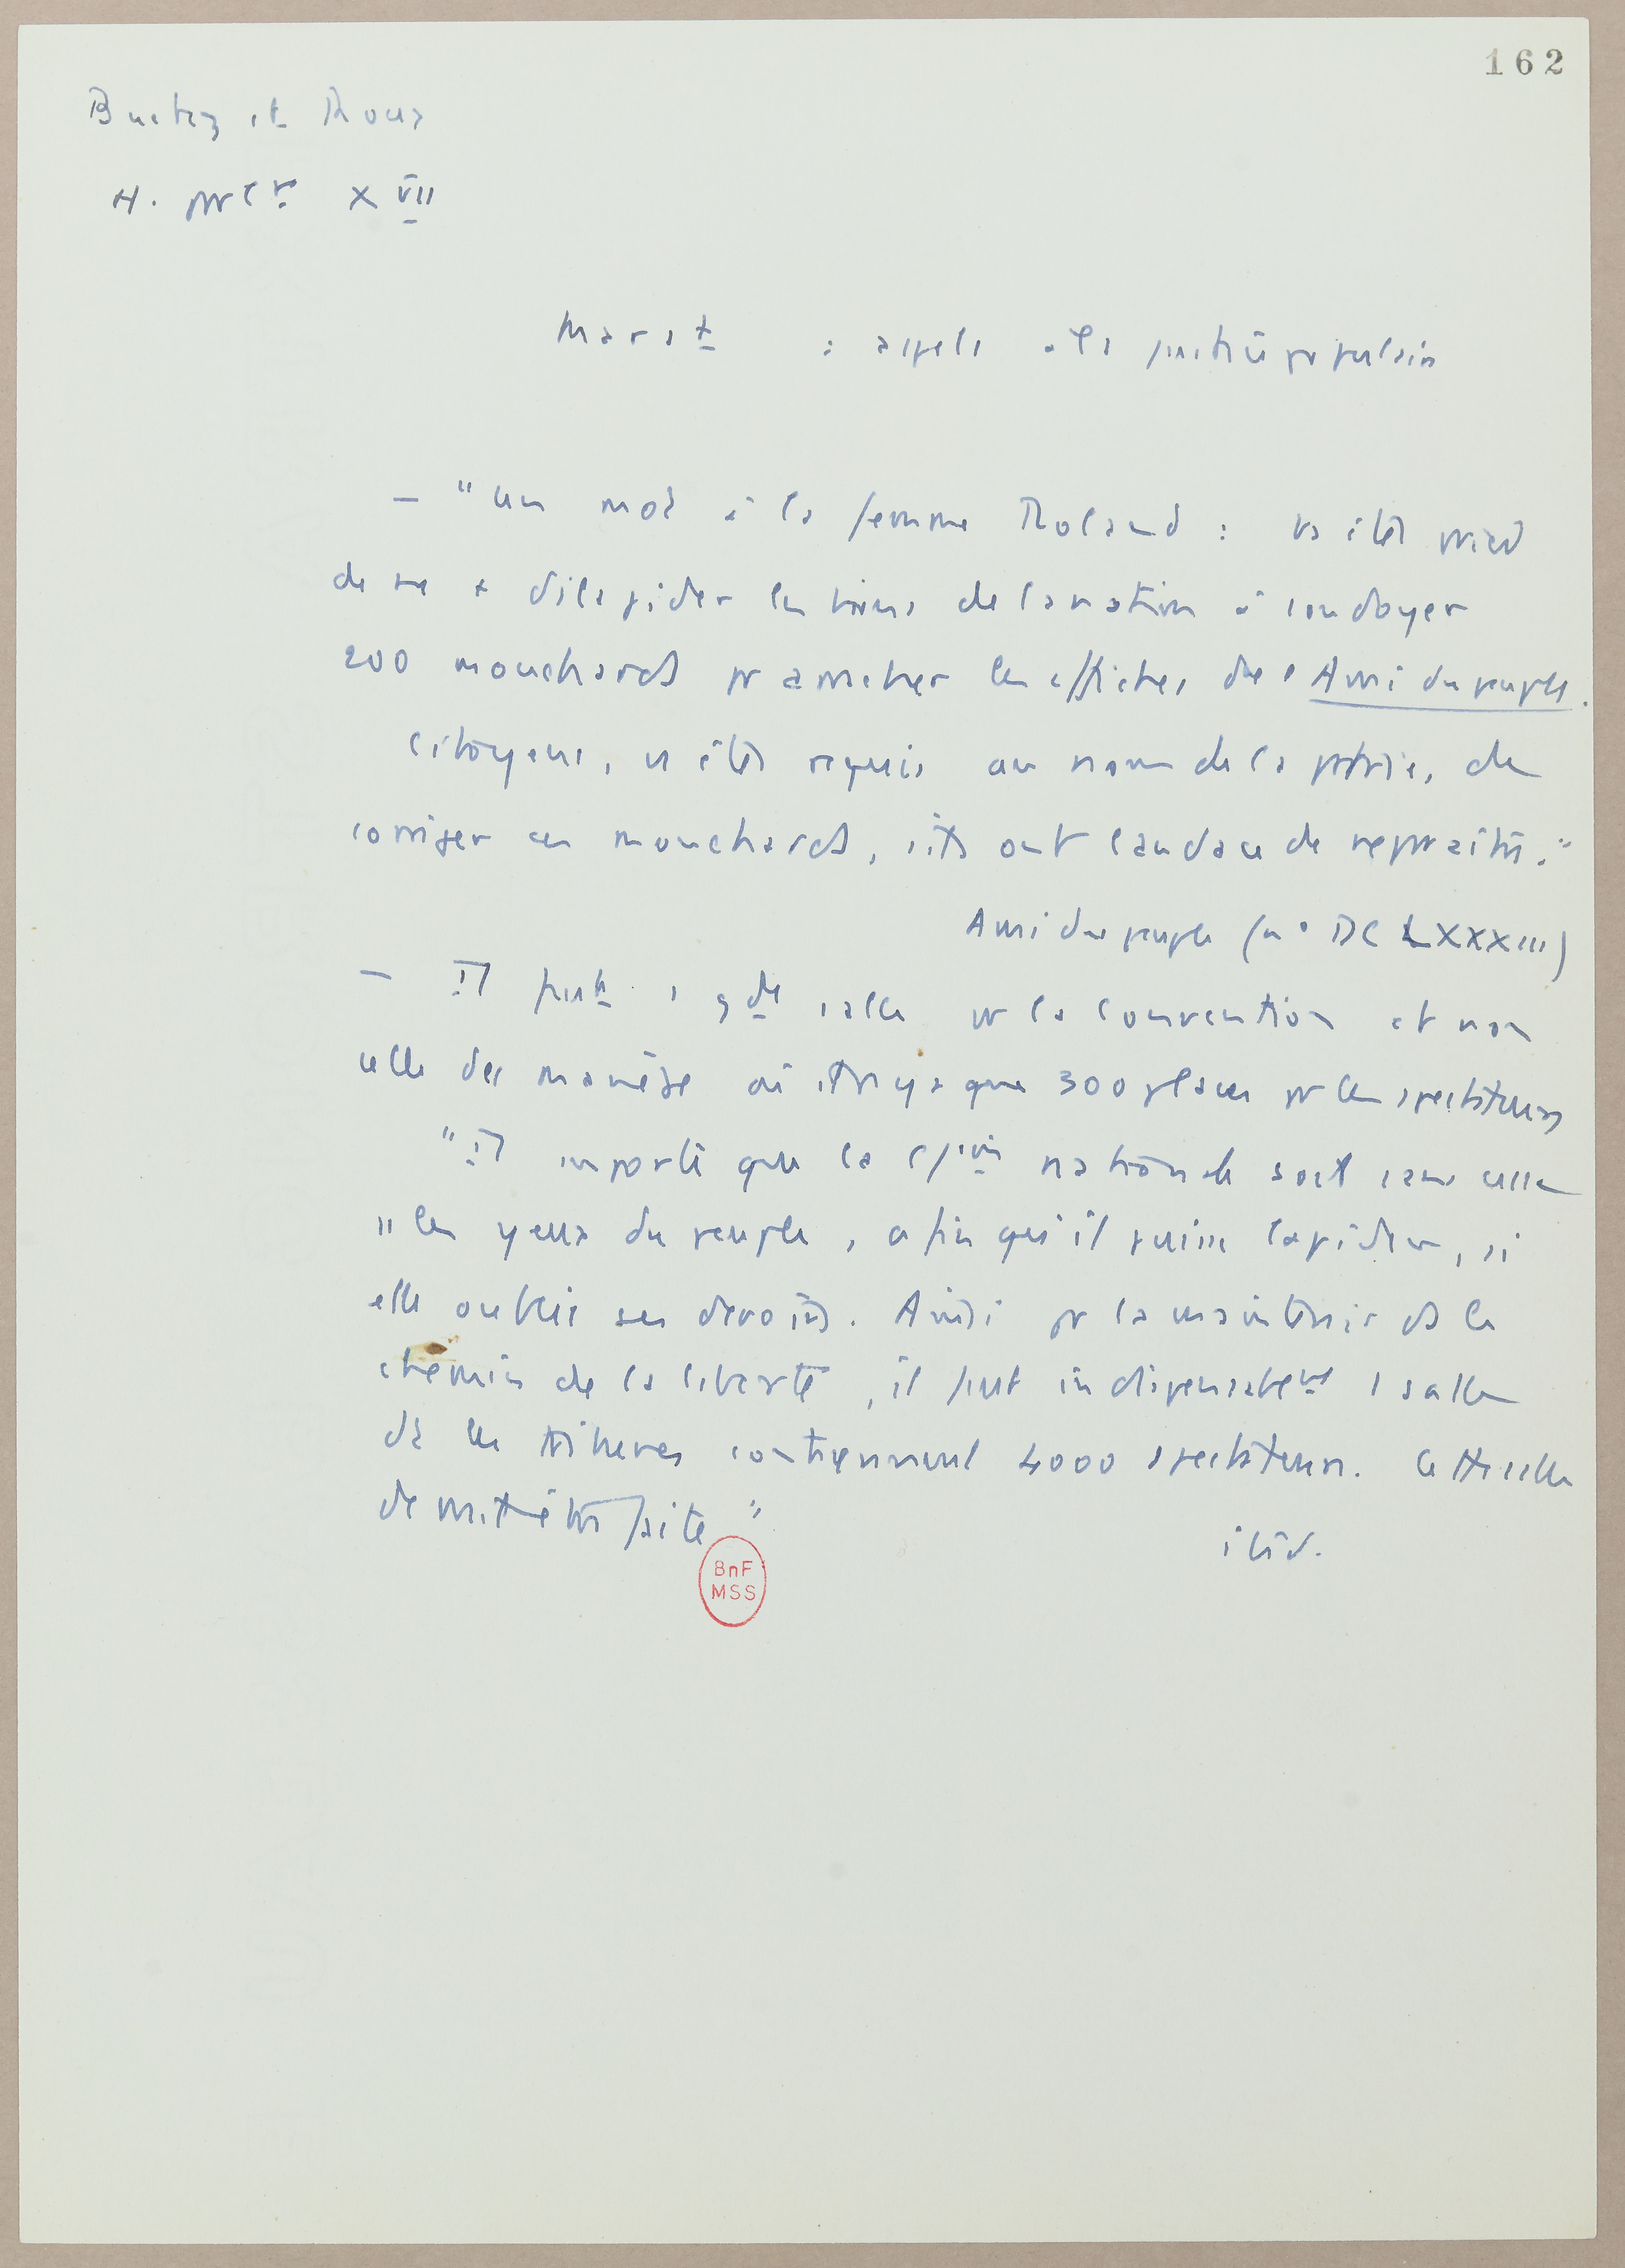 162
Buchez et Roux
H. parlre XVII
Marat : appels à la justice populaire
— "Un mot à la femme Roland : vs êtes priée
de ne + dilapider les biens de la nation à soudoyer
200 mouchards pr arracher les affiches de l'Ami du peuple.
Citoyens, vs êtes requis au nom de la patrie, de
corriger ces mouchards, s'ils ont l'audace de reparaître."
Ami du peuple (n° DCLXXXIII)
— Il faut 1 gde salle pr la Convention et non
celle du manège où il n'y a que 300 places pr les spectateurs
"Il importe que la Convion nationale soit sans cesse
ss les yeux du peuple, afin qu'il puisse la lapider, si
elle oublie ses devoirs. Ainsi pr la maintenir ds le
chemin de la liberté, il faut indispensablemt 1 salle
dt les tribunes contiennent 4000 spectateurs. Cette salle
devrait être faite"
ibid.
BnF
MSS